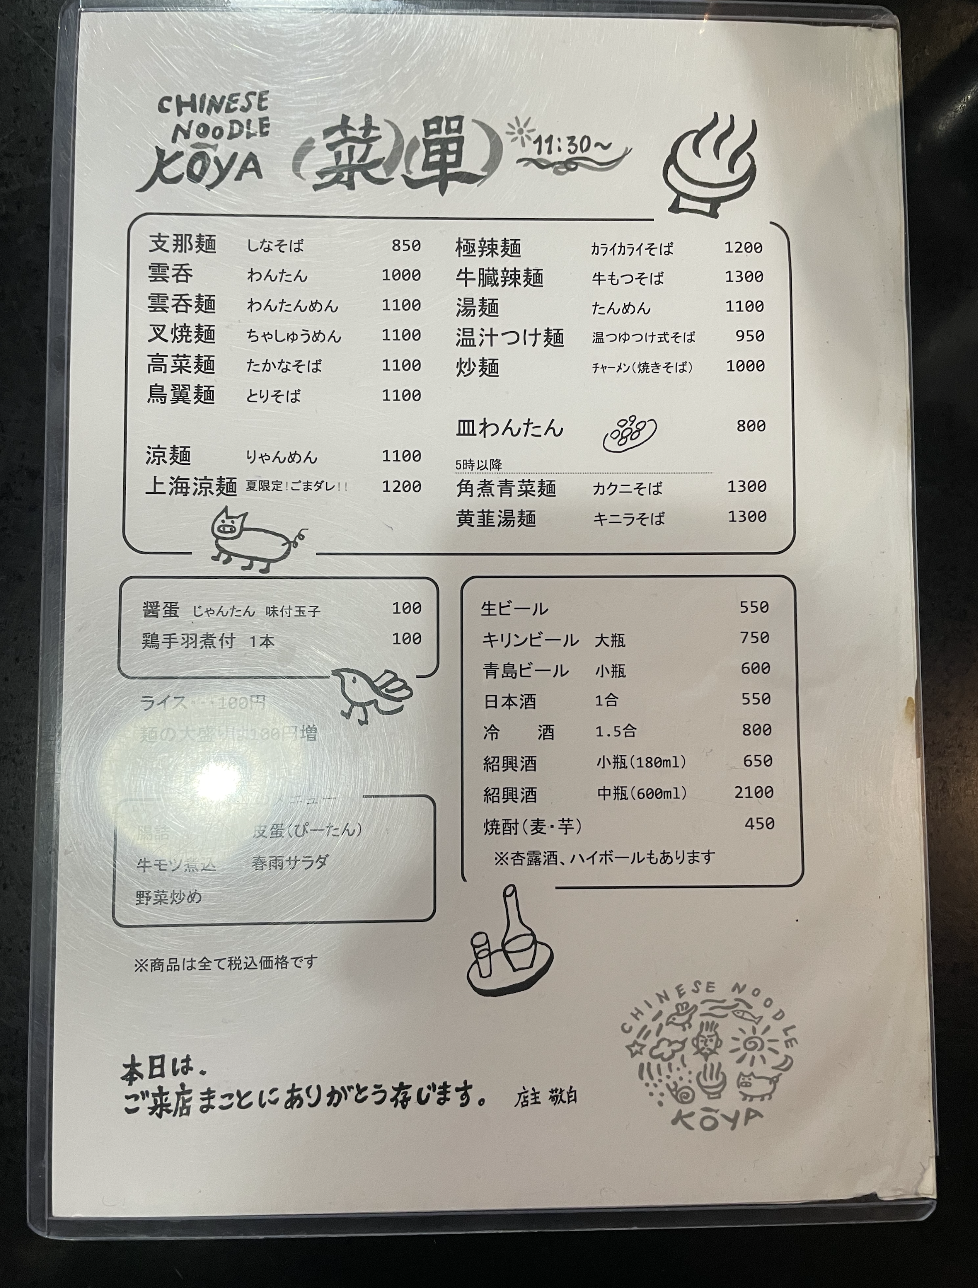 CHINESE
NOODLE
KŌYA
(菜)(單)
11:30~
支那麺 しなそば 850
雲呑 わんたん 1000
雲呑麺 わんたんめん 1100
叉焼麺 ちゃしゅうめん 1100
高菜麺 たかなそば 1100
鳥翼麺 とりそば 1100
涼麺 りゃんめん 1100
上海涼麺 夏限定!ごまダレ!! 1200
極辣麺 カライカライそば 1200
牛臓辣麺 牛もつそば 1300
湯麺 たんめん 1100
温汁つけ麺 温つゆつけ式そば 950
炒麺 チャーメン(焼きそば) 1000
皿わんたん 800
5時以降
角煮青菜麺 カクニそば 1300
黄韮湯麺 キニラそば 1300
醤蛋 じゃんたん 味付玉子 100
鶏手羽煮付 1本 100
ライス・・・100円
麺の大盛りは100円増
ニュー
皮蛋(ぴーたん)
牛モツ煮込 春雨サラダ
野菜炒め
※商品は全て税込価格です
生ビール 550
キリンビール 大瓶 750
青島ビール 小瓶 600
日本酒 1合 550
冷 酒 1.5合 800
紹興酒 小瓶(180ml) 650
紹興酒 中瓶(600ml) 2100
焼酎(麦・芋) 450
※杏露酒、ハイボールもあります
本日は、
ご来店まことにありがとう存じます。 店主 敬白
CHINESE NOODLE
KŌYA